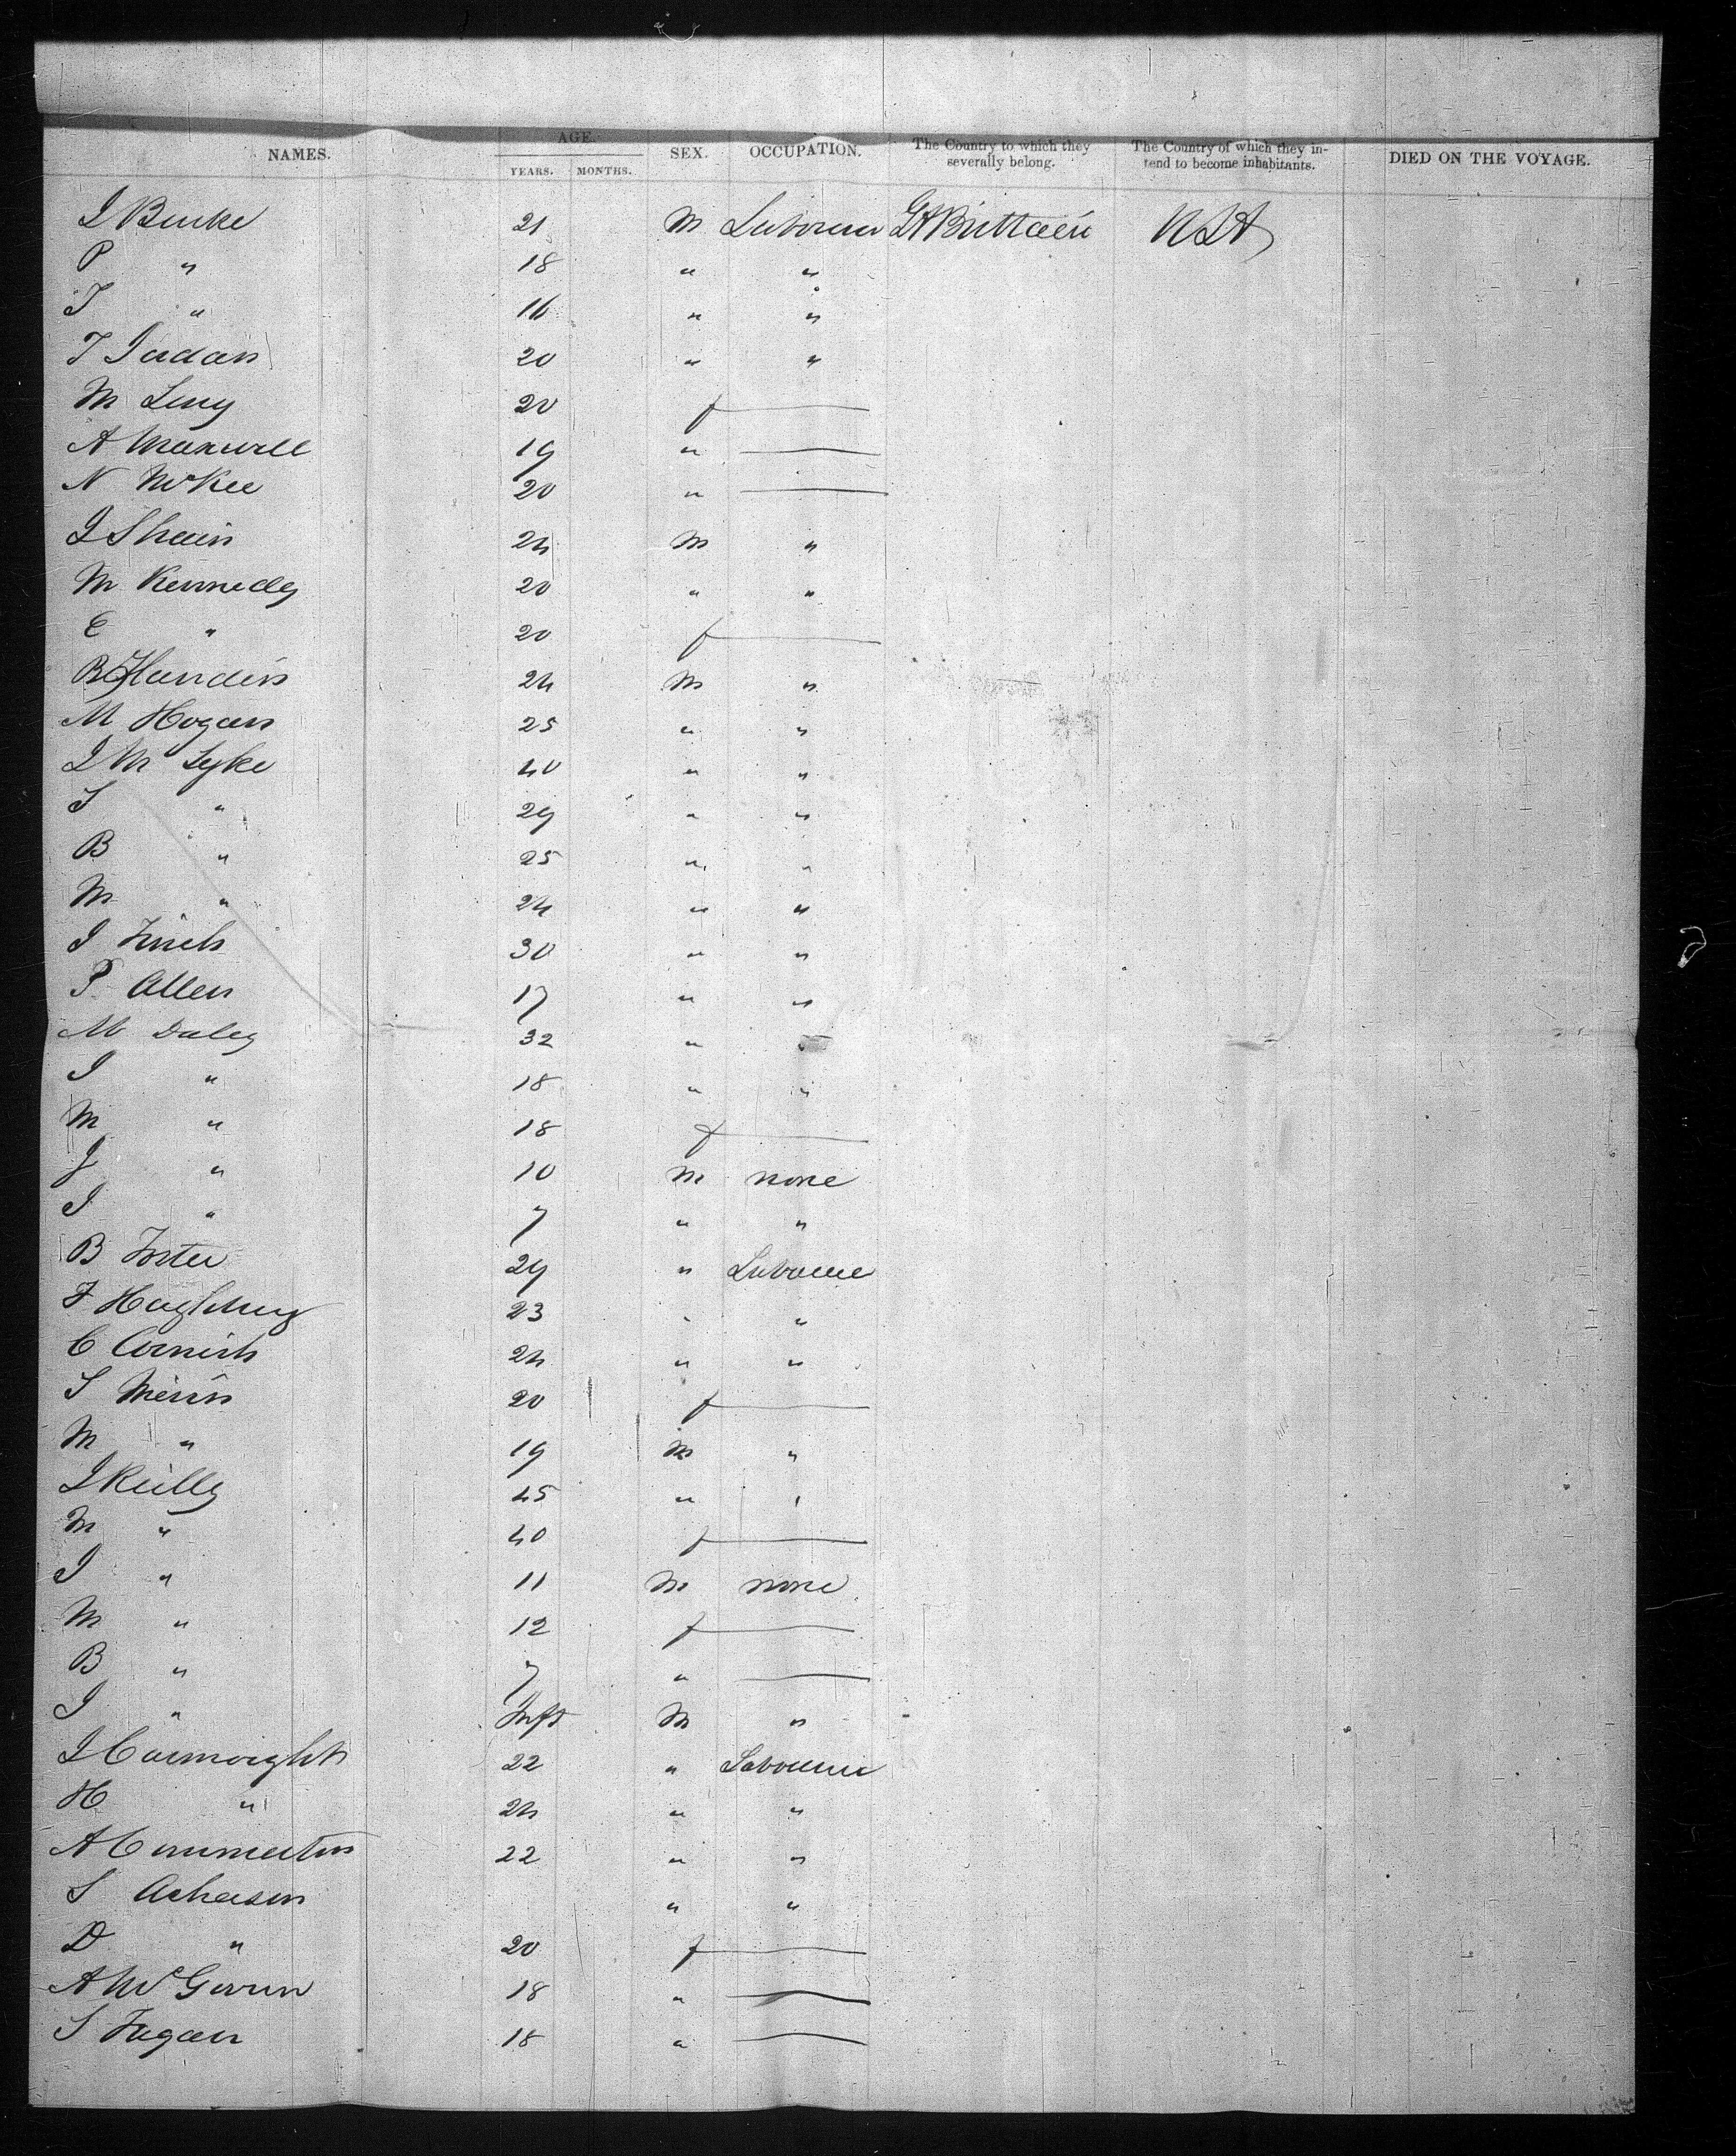 NAMES. AGE. YEARS. MONTHS. SEX. OCCUPATION. The Country to which they severally belong. The Country of which they intend to become inhabitants. DIED ON THE VOYAGE.
J Burke 21 M Labourer Gt Brittain USA
P " 18 " "
T " 16 " "
T Jordan 20 " "
M Leny 20 f
A Maxwell 19 "
N McKee 20 "
J Shain 24 M "
M Kennedy 20 " "
E " 20 f
B 24 M "
M Hogan 25 " "
J M Lyke 40 " "
S " 29 " "
B " 25 " "
M " 24 " "
J Finch 30 " "
P Allen 17 " "
M Daley 32 " "
J " 18 " "
M " 18 f
J " 10 M none
J " 7 " "
B Foster 29 " Labourer
F 23 " "
C Cornish 24 " "
S 20 f
M " 19 M "
J Reilly 45 " "
M " 40 f
J " 11 M none
M " 12 f
B " 7 "
J " Inft M "
J Cartwright 22 " Labourer
H " 24 " "
A 22 " "
S Acheson " "
D " 20 f
A McGovern 18 "
S Fagan 18 "